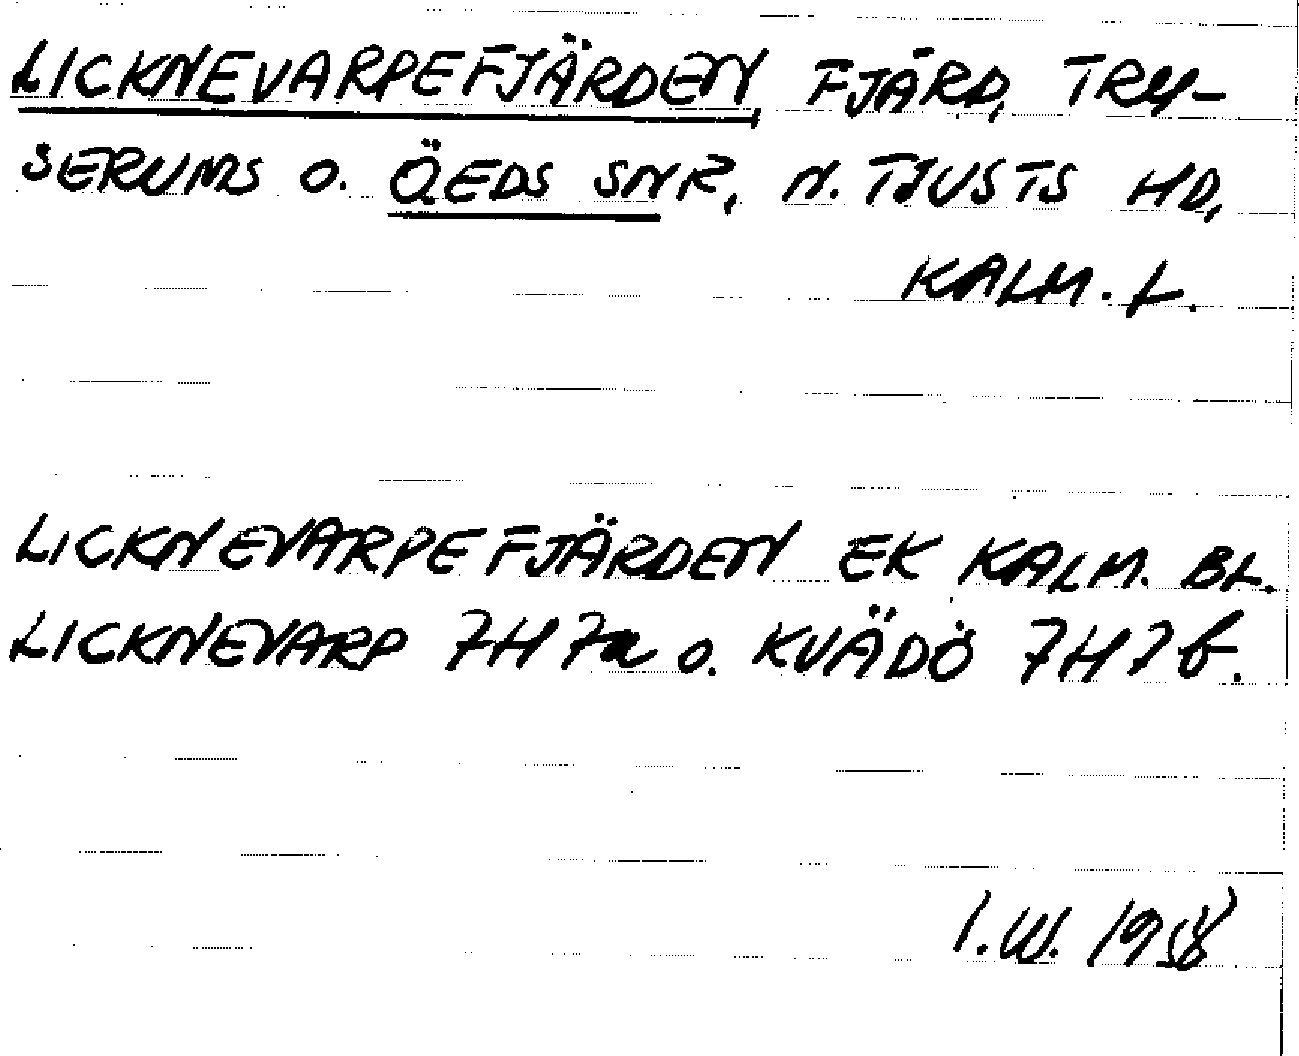 LICKNEVARPEFJÄRDEN, FJÄRD, TRY-
SERUMS O. ÖEDS SNR, N. TJUSTS HD,
KALM. L.
LICKNEVARPEFJÄRDEN EK KALM. BL.
LICKNEVARP 7H7a o. KVÄDÖ 7H7b.
I.W. 1958